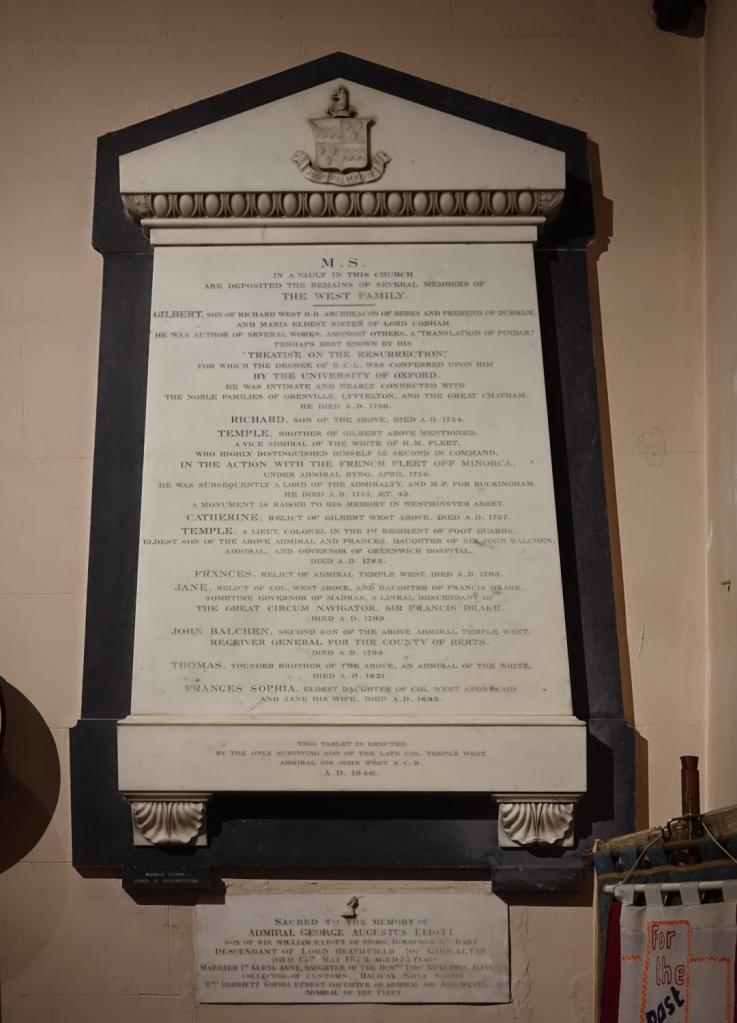 JOUR DE MA VIE
M. S.
IN A VAULT IN THIS CHURCH
ARE DEPOSITED THE REMAINS OF SEVERAL MEMBERS OF
THE WEST FAMILY.
GILBERT, SON OF RICHARD WEST D.D. ARCHDEACON OF BERKS AND PREBEND OF DURHAM,
AND MARIA ELDEST SISTER OF LORD COBHAM.
HE WAS AUTHOR OF SEVERAL WORKS, AMONGST OTHERS, A "TRANSLATION OF PINDAR,"
PERHAPS BEST KNOWN BY HIS
"TREATISE ON THE RESURRECTION,"
FOR WHICH THE DEGREE OF D.C.L. WAS CONFERRED UPON HIM
BY THE UNIVERSITY OF OXFORD.
HE WAS INTIMATE AND NEARLY CONNECTED WITH
THE NOBLE FAMILIES OF GRENVILLE, LYTTELTON, AND THE GREAT CHATHAM.
HE DIED A.D. 1756.
RICHARD, SON OF THE ABOVE, DIED A.D. 1754.
TEMPLE, BROTHER OF GILBERT ABOVE MENTIONED,
A VICE ADMIRAL OF THE WHITE OF H.M. FLEET,
WHO HIGHLY DISTINGUISHED HIMSELF AS SECOND IN COMMAND,
IN THE ACTION WITH THE FRENCH FLEET OFF MINORCA,
UNDER ADMIRAL BYNG, APRIL 1756.
HE WAS SUBSEQUENTLY A LORD OF THE ADMIRALTY, AND M.P. FOR BUCKINGHAM.
HE DIED A.D. 1757, ÆT. 42.
A MONUMENT IS RAISED TO HIS MEMORY IN WESTMINSTER ABBEY.
CATHERINE, RELICT OF GILBERT WEST ABOVE, DIED A.D. 1757.
TEMPLE, A LIEUT. COLONEL IN THE 1ST REGIMENT OF FOOT GUARDS,
ELDEST SON OF THE ABOVE ADMIRAL AND FRANCES, DAUGHTER OF SIR JOHN BALCHEN,
ADMIRAL, AND GOVERNOR OF GREENWICH HOSPITAL,
DIED A.D. 1783.
FRANCES, RELICT OF ADMIRAL TEMPLE WEST, DIED A.D. 1793.
JANE, RELICT OF COL. WEST ABOVE, AND DAUGHTER OF FRANCIS DRAKE,
SOMETIME GOVERNOR OF MADRAS, A LINEAL DESCENDANT OF
THE GREAT CIRCUM NAVIGATOR, SIR FRANCIS DRAKE.
DIED A.D. 1799.
JOHN BALCHEN, SECOND SON OF THE ABOVE ADMIRAL TEMPLE WEST,
RECEIVER GENERAL FOR THE COUNTY OF HERTS.
DIED A.D. 1793.
THOMAS, YOUNGER BROTHER OF THE ABOVE, AN ADMIRAL OF THE WHITE,
DIED A.D. 1821.
FRANCES SOPHIA, ELDEST DAUGHTER OF COL. WEST AFORESAID
AND JANE HIS WIFE, DIED A.D. 1833.
THIS TABLET IS ERECTED
BY THE ONLY SURVIVING SON OF THE LATE COL. TEMPLE WEST,
ADMIRAL SIR JOHN WEST K.C.B.
A.D. 1846.
SACRED TO THE MEMORY OF
ADMIRAL GEORGE AUGUSTUS ELIOTT
SON OF SIR WILLIAM ELIOTT OF STOBS, ROXBURGH 6TH BART
DESCENDANT OF LORD HEATHFIELD (OF GIBRALTAR)
DIED 13TH MAY 1872, AGED 73 YEARS
MARRIED 1ST ALICIA ANNE, DAUGHTER OF THE HONBLE THOS
COLLECTOR OF CUSTOMS, HALIFAX NOVA SCOTIA
2ND HARRIETT SOPHIA ELDEST DAUGHTER OF ADMIRAL SIR JOHN WEST
ADMIRAL OF THE FLEET
For
the
past